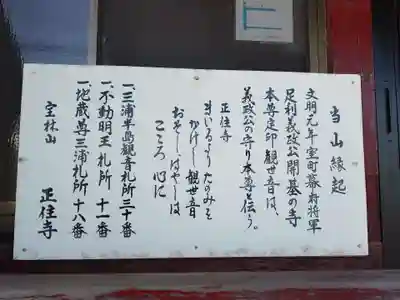 当山縁起
文明元年室町幕府将軍
足利義政公開基の寺
本尊定印観世音は、
義政公の守り本尊と伝う。
正住寺
まいるより たのみを
かけし観世音
おそしはやしは
こころ心に
一、三浦半島観音札所三十番
一、不動明王札所 十一番
一、地蔵尊三浦札所 十八番
宝林山 正住寺